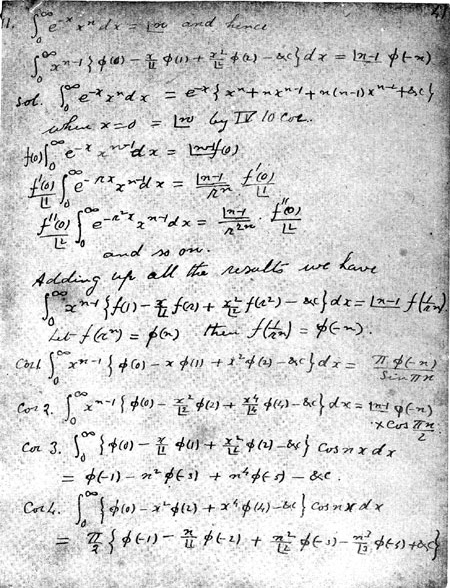 11. ∫₀^∞ e^{-x} x^n dx = |n and hence
∫₀^∞ x^{n-1} { φ(0) - x/|1 φ(1) + x²/|2 φ(2) - &c } dx = |n-1 φ(-n)
Sol. ∫₀^∞ e^{-x} x^n dx = e^{-x} { x^n + n x^{n-1} + n(n-1) x^{n-2} + &c }
when x=0 = |n by IV 10 Cor.
f(0) ∫₀^∞ e^{-x} x^{n-1} dx = |n-1 f(0)
f'(0)/|1 ∫₀^∞ e^{-rx} x^{n-1} dx = |n-1/r^n f'(0)/|1
f''(0)/|2 ∫₀^∞ e^{-r²x} x^{n-1} dx = |n-1/r^{2n} · f''(0)/|2
and so on.
Adding up all the results we have
∫₀^∞ x^{n-1} { f(1) - x/|1 f(r) + x²/|2 f(r²) - &c } dx = |n-1 f(1/r^n).
Let f(r^n) = φ(n) then f(1/r^n) = φ(-n).
Cor 1 ∫₀^∞ x^{n-1} { φ(0) - x φ(1) + x² φ(2) - &c } dx = π φ(-n) / Sin πn
Cor 2. ∫₀^∞ x^{n-1} { φ(0) - x²/|2 φ(2) + x⁴/|4 φ(4) - &c } dx = |n-1 φ(-n)
× Cos πn/2.
Cor 3. ∫₀^∞ { φ(0) - x/|1 φ(1) + x²/|2 φ(2) - &c } Cos nx dx
= φ(-1) - n² φ(-3) + n⁴ φ(-5) - &c.
Cor 4. ∫₀^∞ { φ(0) - x² φ(2) + x⁴ φ(4) - &c } Cos nx dx
= π/2 { φ(-1) - n/|1 φ(-2) + n²/|2 φ(-3) - n³/|3 φ(-4) + &c }